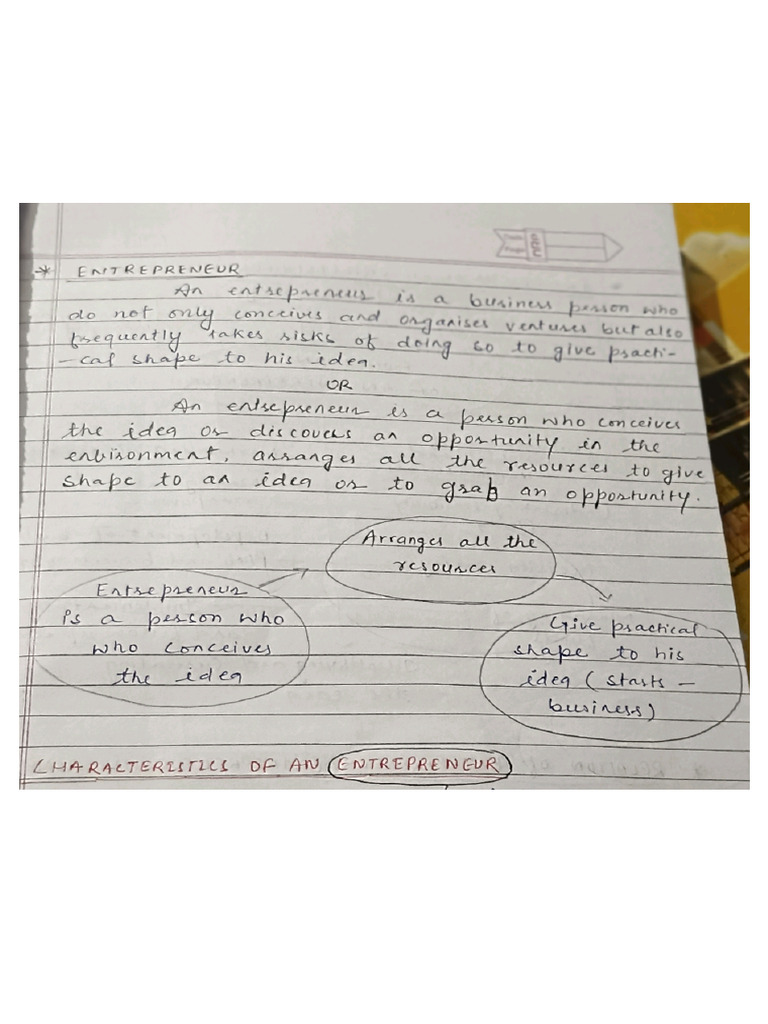 * ENTREPRENEUR
An entrepreneur is a business person who
do not only conceives and organises ventures but also
frequently takes risks of doing so to give practi-
-cal shape to his idea.
OR
An entrepreneur is a person who conceives
the idea or discovers an opportunity in the
environment, arranges all the resources to give
shape to an idea or to grab an opportunity.
Arranges all the
resources
Entrepreneur
is a person who
who conceives
the idea
Give practical
shape to his
idea (starts -
business)
CHARACTERISTICS OF AN ENTREPRENEUR